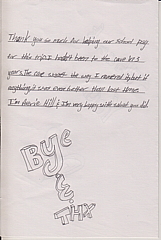 Thank you so much for helping our school pay
for this trip. I hadn't been to the cave in 3
years. The cave wasn't the way I remembered it, but if
anything it was even better than
I'm Averie Hill & I'm very happy with what you did.
BYE
&
THX